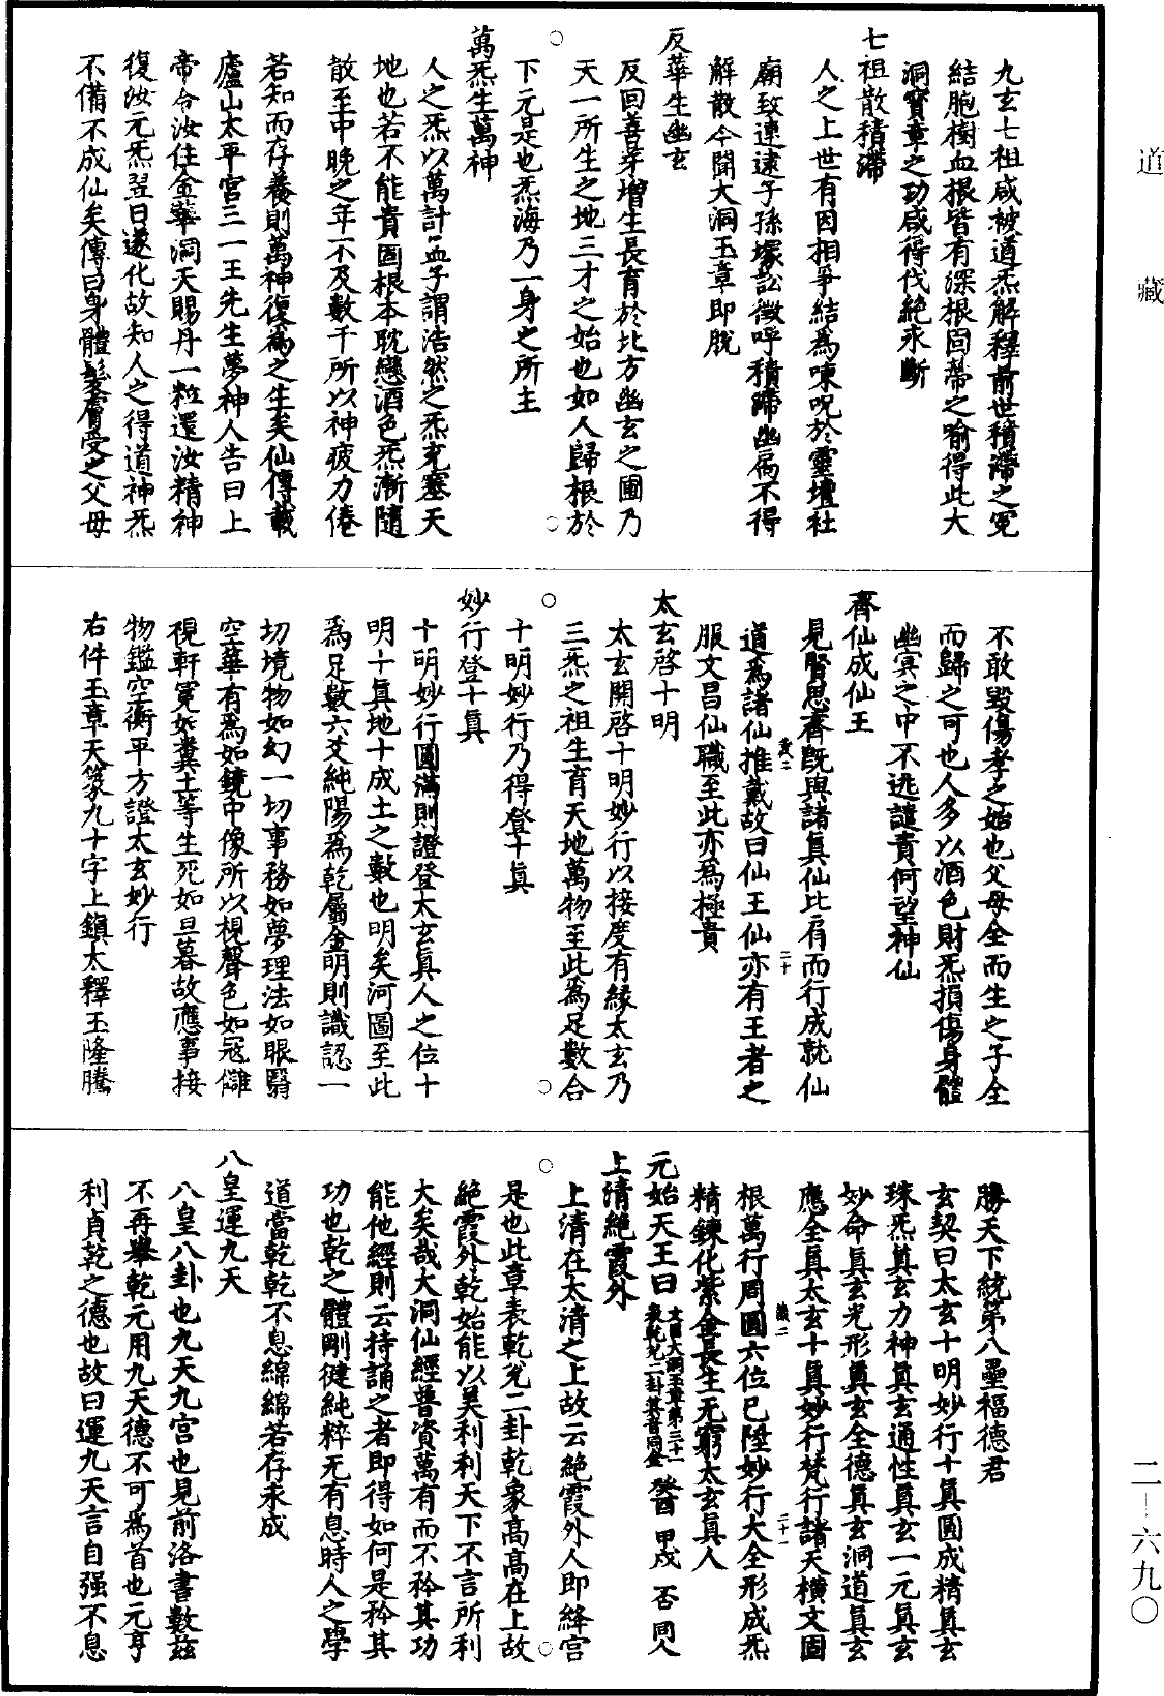 道藏
九玄七祖咸被道炁解釋前世積滯之冤
結胞樹血根皆有深根固蔕之喻得此大
洞寶章之功咸得伐絶永斷
七祖散積滯
人之上世有因相爭結為㖦呪於靈壇社
廟致連逮子孫塚訟徵呼積滯幽扃不得
解散今聞大洞玉章即脫
反華生幽玄
反回善芽增生長育於北方幽玄之圃乃
天一所生之地三才之始也如人歸根於
下元是也炁海乃一身之所主
萬炁生萬神
人之炁以萬計孟子謂浩然之炁充塞天
地也若不能貴固根本耽戀酒色炁漸隨
散至中晚之年一不及數千所以神疲力倦
若知而存養則萬神復為之生矣仙傳載
廬山太平宮三一王先生夢神人告曰上
帝令汝住金華洞天賜丹一粒還汝精神
復汝元炁翌日遂化故知人之得道神炁
不備不成仙矣傳曰身體髮膚受之父母
不敢毀傷孝之始也父母全而生之子全
而歸之可也人多以酒色財炁損傷身體
幽冥之中不逃譴責何望神仙
齊仙成仙王
見賢思齊既與諸真仙比肩而行成就仙
道為諸仙推戴故曰仙王仙亦有王者之
服文昌仙職至此亦為極貴
太玄啓十明
太玄開啓十明妙行以接度有緣太玄乃
三炁之祖生育天地萬物至此為足數合
十明妙行乃得登十真
妙行登十真
十明妙行圓滿則證登太玄真人之位十
明十真地十成土之數也明矣河圖至此
為足數六爻純陽為乾屬金明則識認一
切境物如幻一切事務如夢理法如眼翳
空華有為如鏡中像所以視聲色如寇讎
視軒冕如糞土等生死如旦暮故應事接
物鑑空衡平方證太玄妙行
右件玉章天篆九十字上鎮太釋玉隆騰
勝天下統第八壘福德君
玄契曰太玄十明妙行十真圓成精真玄
珠炁真玄力神真玄通性真玄一元真玄
妙命真玄光形真玄全德真玄洞道真玄
應全真太玄十真妙行梵行諸天橫文固
根萬行周圓六位已陞妙行大全形成炁
精鍊化紫金長生无窮太玄真人
元始天王曰 文昌大洞玉章第三十一 表乾兌二卦其音同金 癸酉 甲戌 否 同人
上清絶霞外
上清在太清之上故云絶霞外人即絳宮
是也此章表乾兌二卦乾象高高在上故
絶霞外乾始能以美利利天下不言所利
大矣哉大洞仙經普資萬有而不矜其功
能他經則云持誦之者即得如何是矜其
功也乾之體剛健純粹无有息時人之學
道當乾乾不息綿綿若存永成
八皇運九天
八皇八卦也九天九宮也見前洛書數茲
不再舉乾元用九天德不可為首也元亨
利貞乾之德也故曰運九天言自强不息
二－六九〇